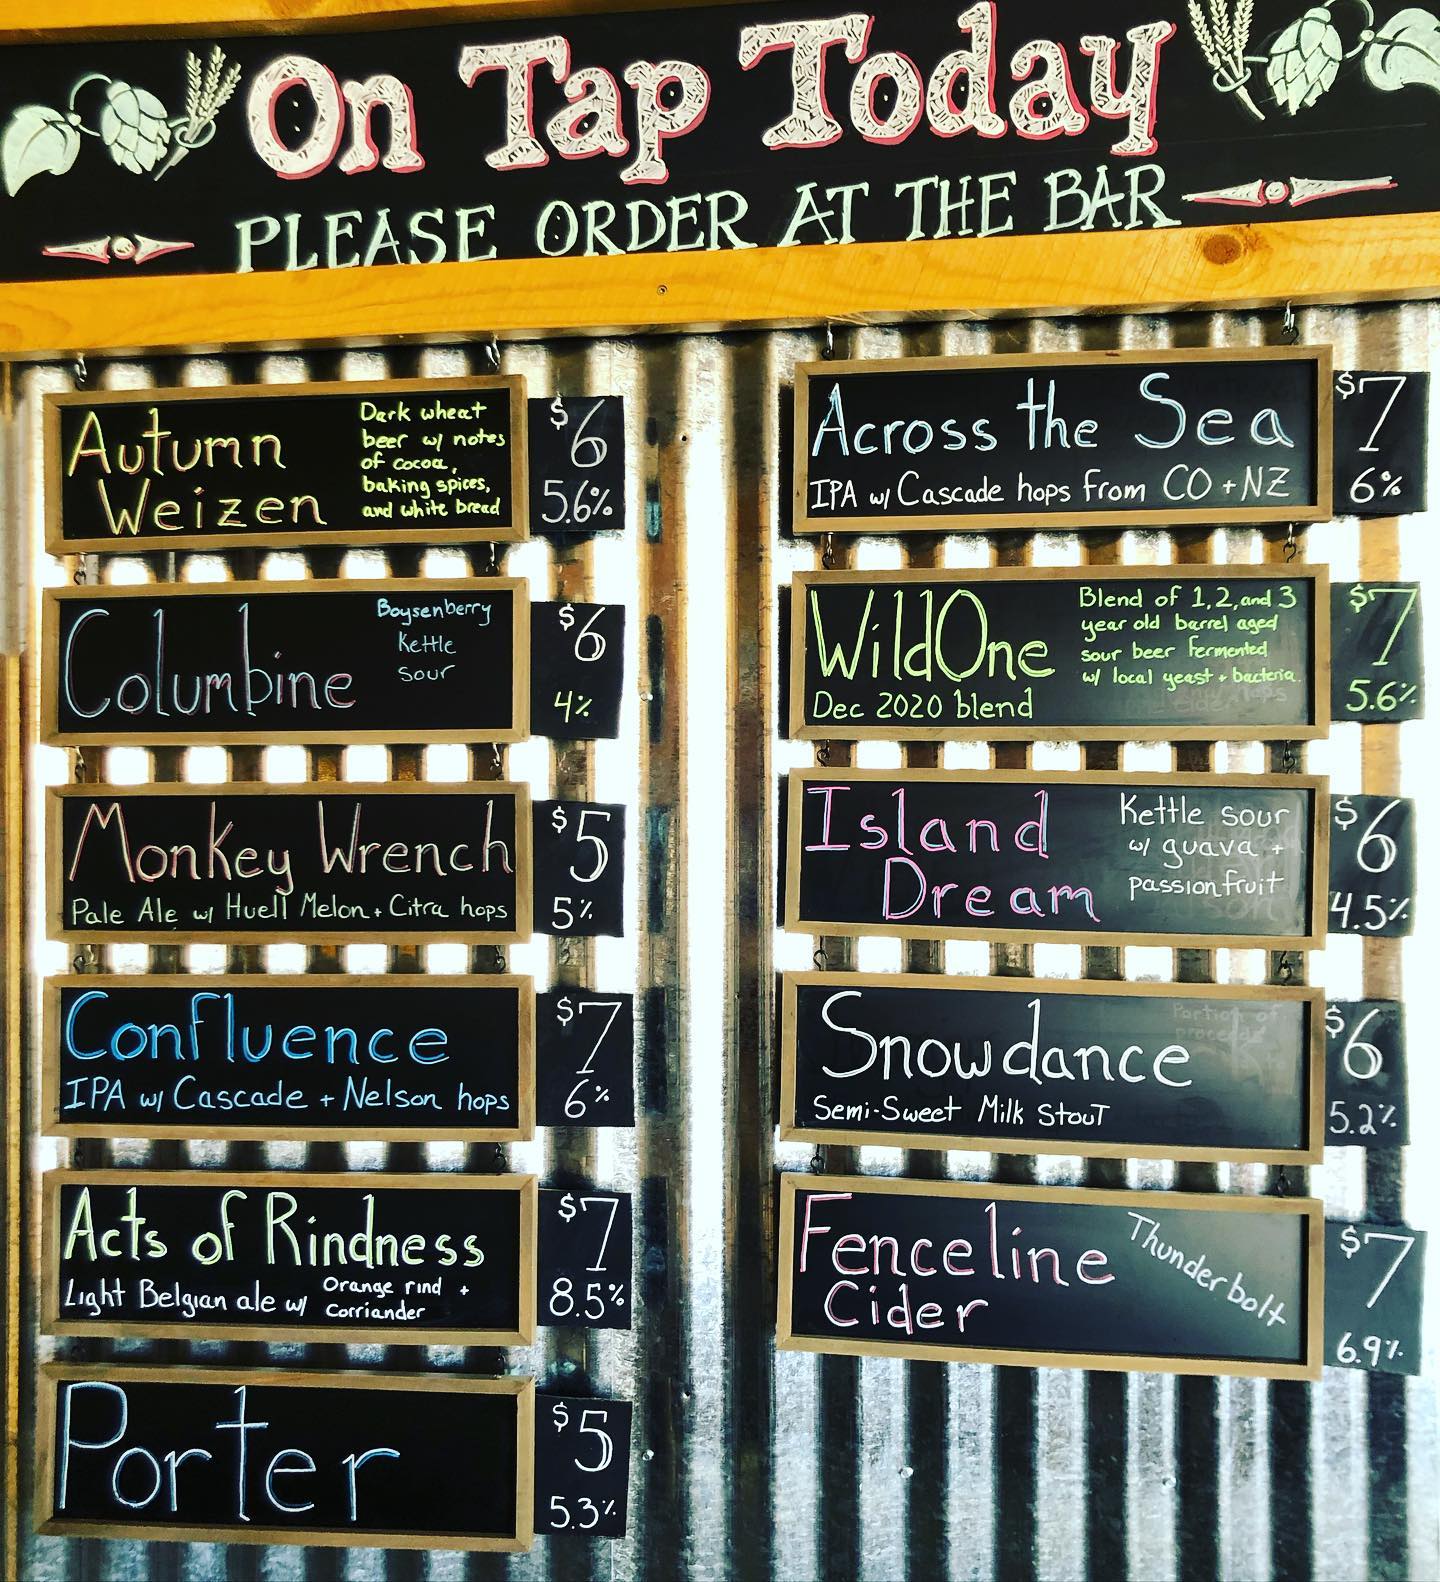 On Tap Today
PLEASE ORDER AT THE BAR
Autumn
Weizen
Dark wheat
beer w/ notes
of cocoa,
baking spices,
and white bread
$6
5.6%
Columbine
Boysenberry
Kettle
sour
$6
4%
Monkey Wrench
Pale Ale w/ Huell Melon + Citra hops
$5
5%
Confluence
IPA w/ Cascade + Nelson hops
$7
6%
Acts of Rindness
Light Belgian ale w/
Orange rind +
Corriander
$7
8.5%
Porter
$5
5.3%
Across the Sea
IPA w/ Cascade hops from CO + NZ
$7
6%
WildOne
Dec 2020 blend
Blend of 1, 2, and 3
year old barrel aged
sour beer fermented
w/ local yeast + bacteria.
$7
5.6%
Island
Dream
Kettle sour
w/ guava +
passionfruit
$6
4.5%
Snowdance
Semi-Sweet Milk Stout
Portion of
$6
5.2%
Fenceline
Cider
Thunderbolt
$7
6.9%